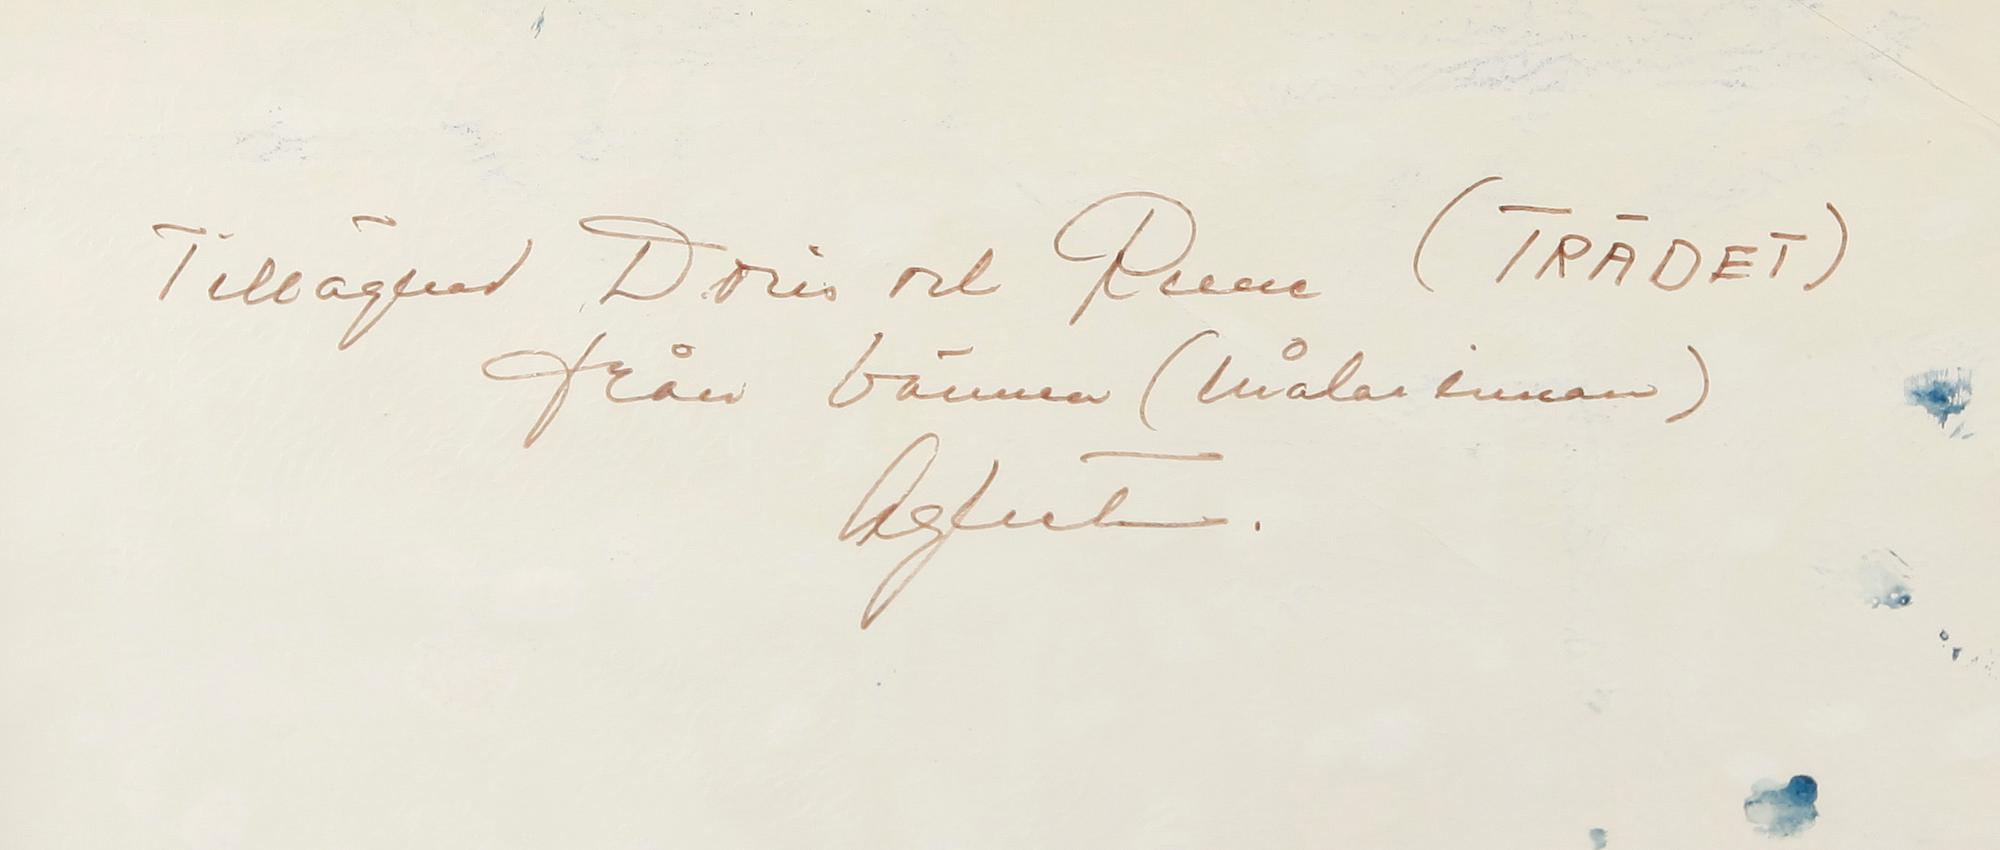 Tillägnad Doris och Rune (TRÄDET)
från vännen (målarinnan)